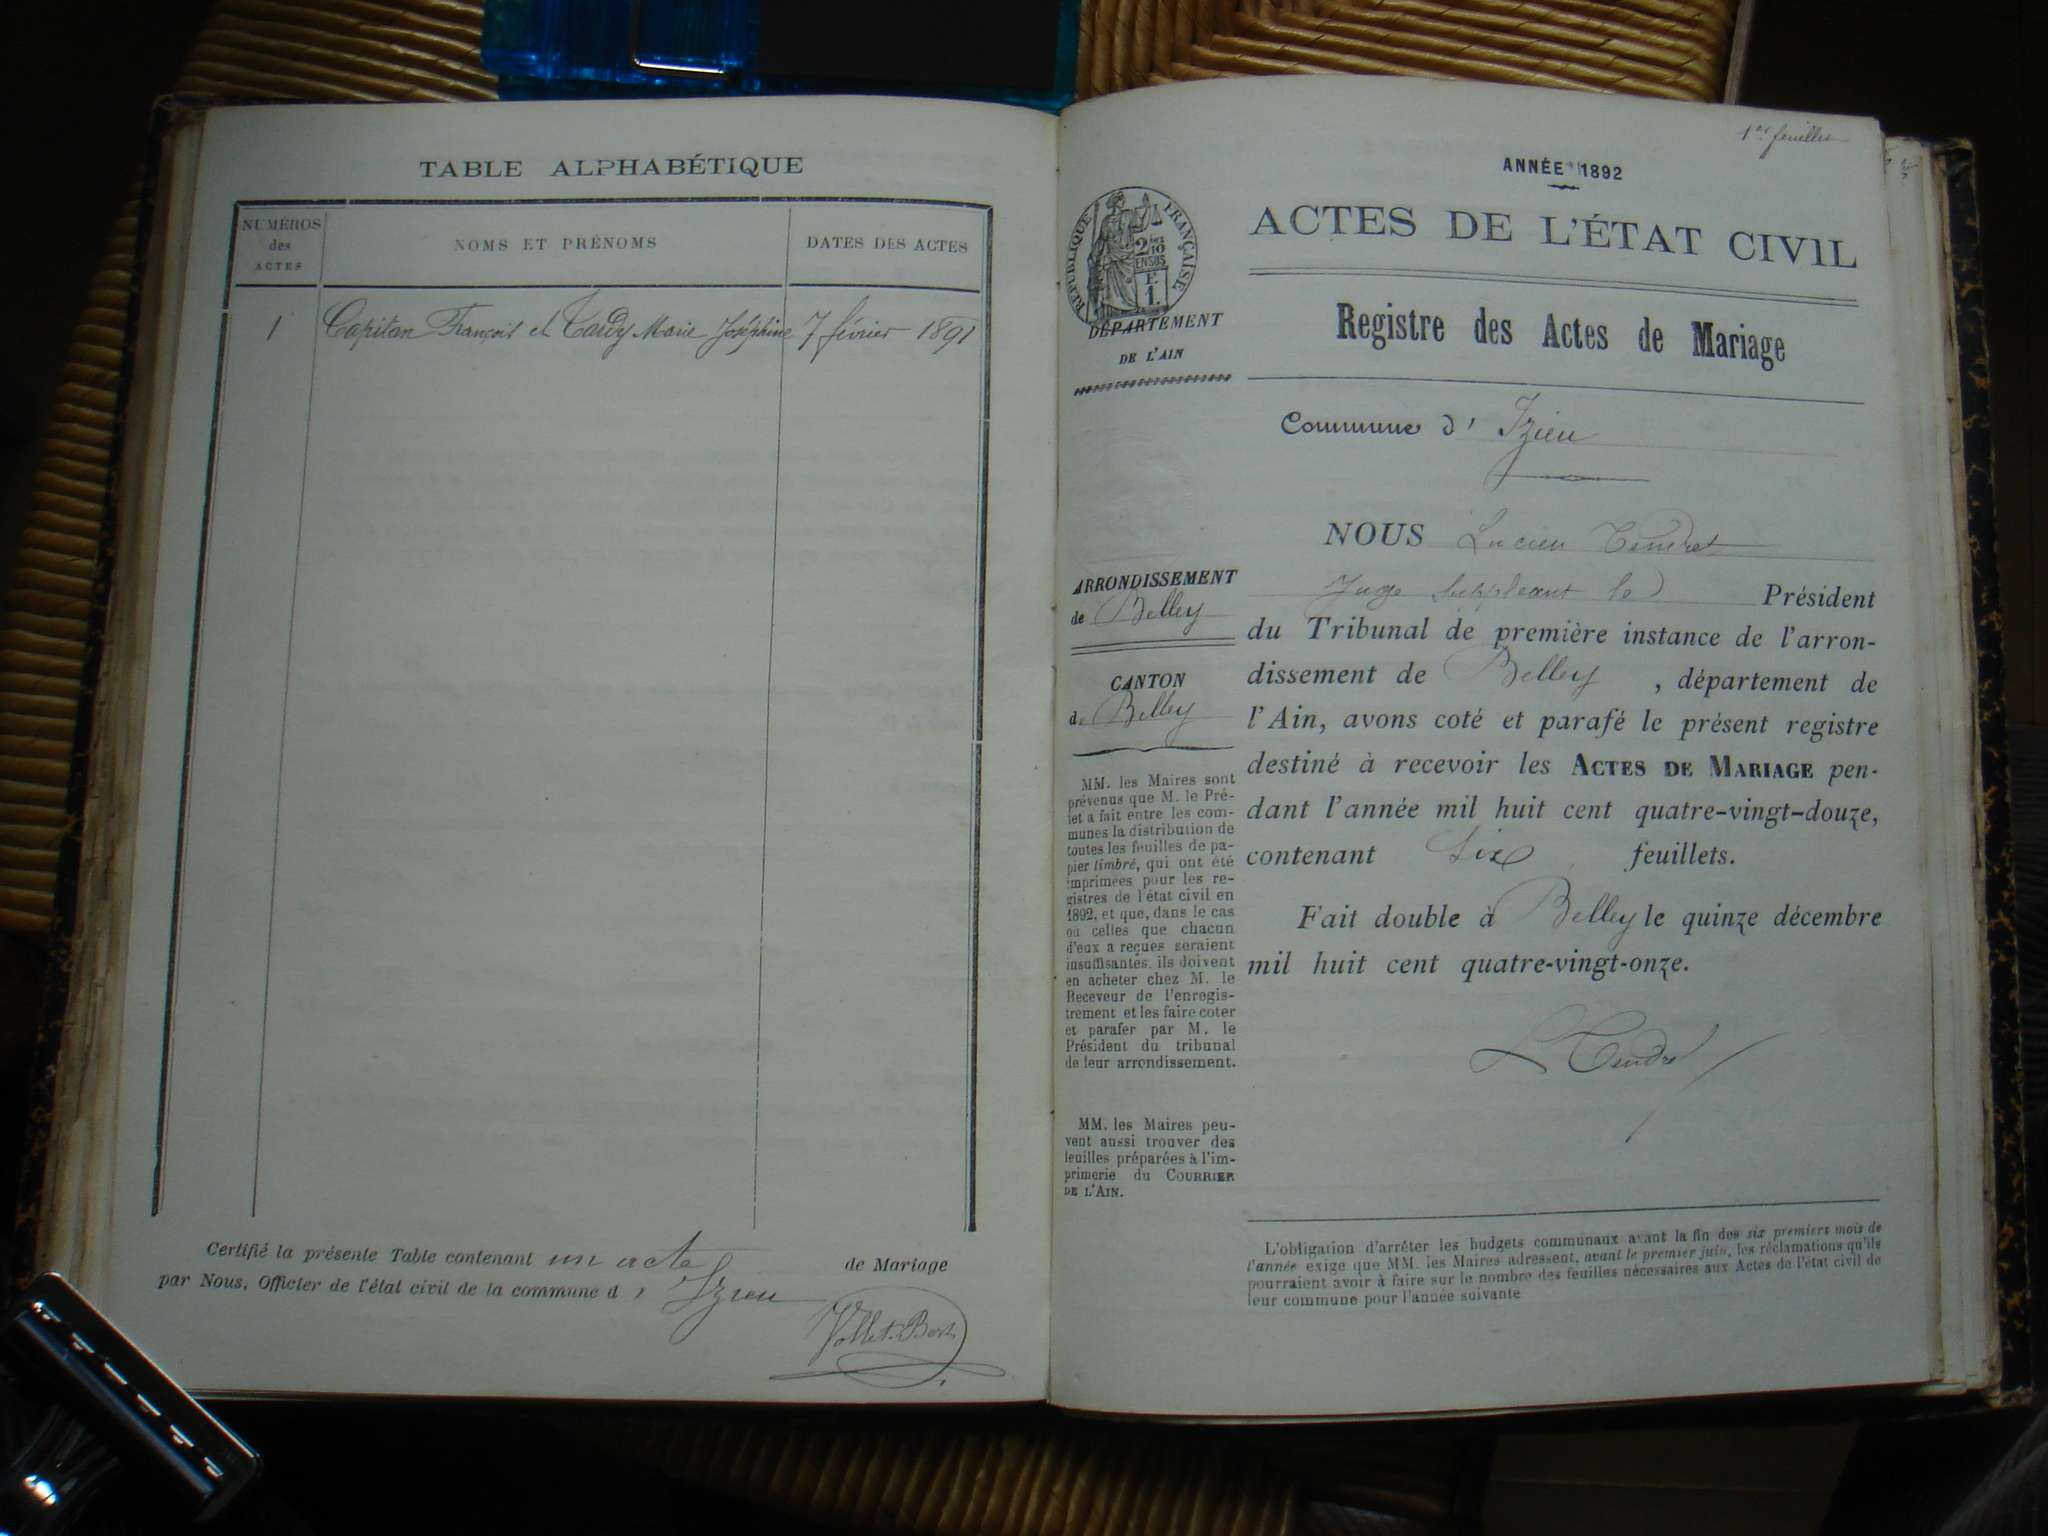 TABLE ALPHABÉTIQUE
NUMÉROS
des
ACTES
NOMS ET PRÉNOMS
DATES DES ACTES
1 Capitan François et Tardy Marie Joséphine 7 février 1891
Certifié la présente Table contenant un acte de Mariage
par Nous, Officier de l'état civil de la commune d' Izieu
1er feuillet
ANNÉE 1892
ACTES DE L'ÉTAT CIVIL
RÉPUBLIQUE FRANÇAISE
2/10
EN SUS
F
1
DÉPARTEMENT
DE L'AIN
Registre des Actes de Mariage
Commune d' Izieu
ARRONDISSEMENT
de Belley
CANTON
de Belley
MM. les Maires sont
prévenus que M. le Pré-
fet a fait entre les com-
munes la distribution de
toutes les feuilles de pa-
pier timbré, qui ont été
imprimées pour les re-
gistres de l'état civil en
1892, et que, dans le cas
où celles que chacun
d'eux a reçues seraient
insuffisantes, ils doivent
en acheter chez M. le
Receveur de l'enregis-
trement et les faire coter
et parafer par M. le
Président du tribunal
de leur arrondissement.
MM. les Maires peu-
vent aussi trouver des
feuilles préparées à l'im-
primerie du COURRIER
DE L'AIN.
NOUS Lucien Tendret
Juge suppléant le Président
du Tribunal de première instance de l'arron-
dissement de Belley , département de
l'Ain, avons coté et parafé le présent registre
destiné à recevoir les ACTES DE MARIAGE pen-
dant l'année mil huit cent quatre-vingt-douze,
contenant six feuillets.
Fait double à Belley le quinze décembre
mil huit cent quatre-vingt-onze.
L Tendret
L'obligation d'arrêter les budgets communaux avant la fin des six premiers mois de
l'année exige que MM. les Maires adressent, avant le premier juin, les réclamations qu'ils
pourraient avoir à faire sur le nombre des feuilles nécessaires aux Actes de l'état civil de
leur commune pour l'année suivante